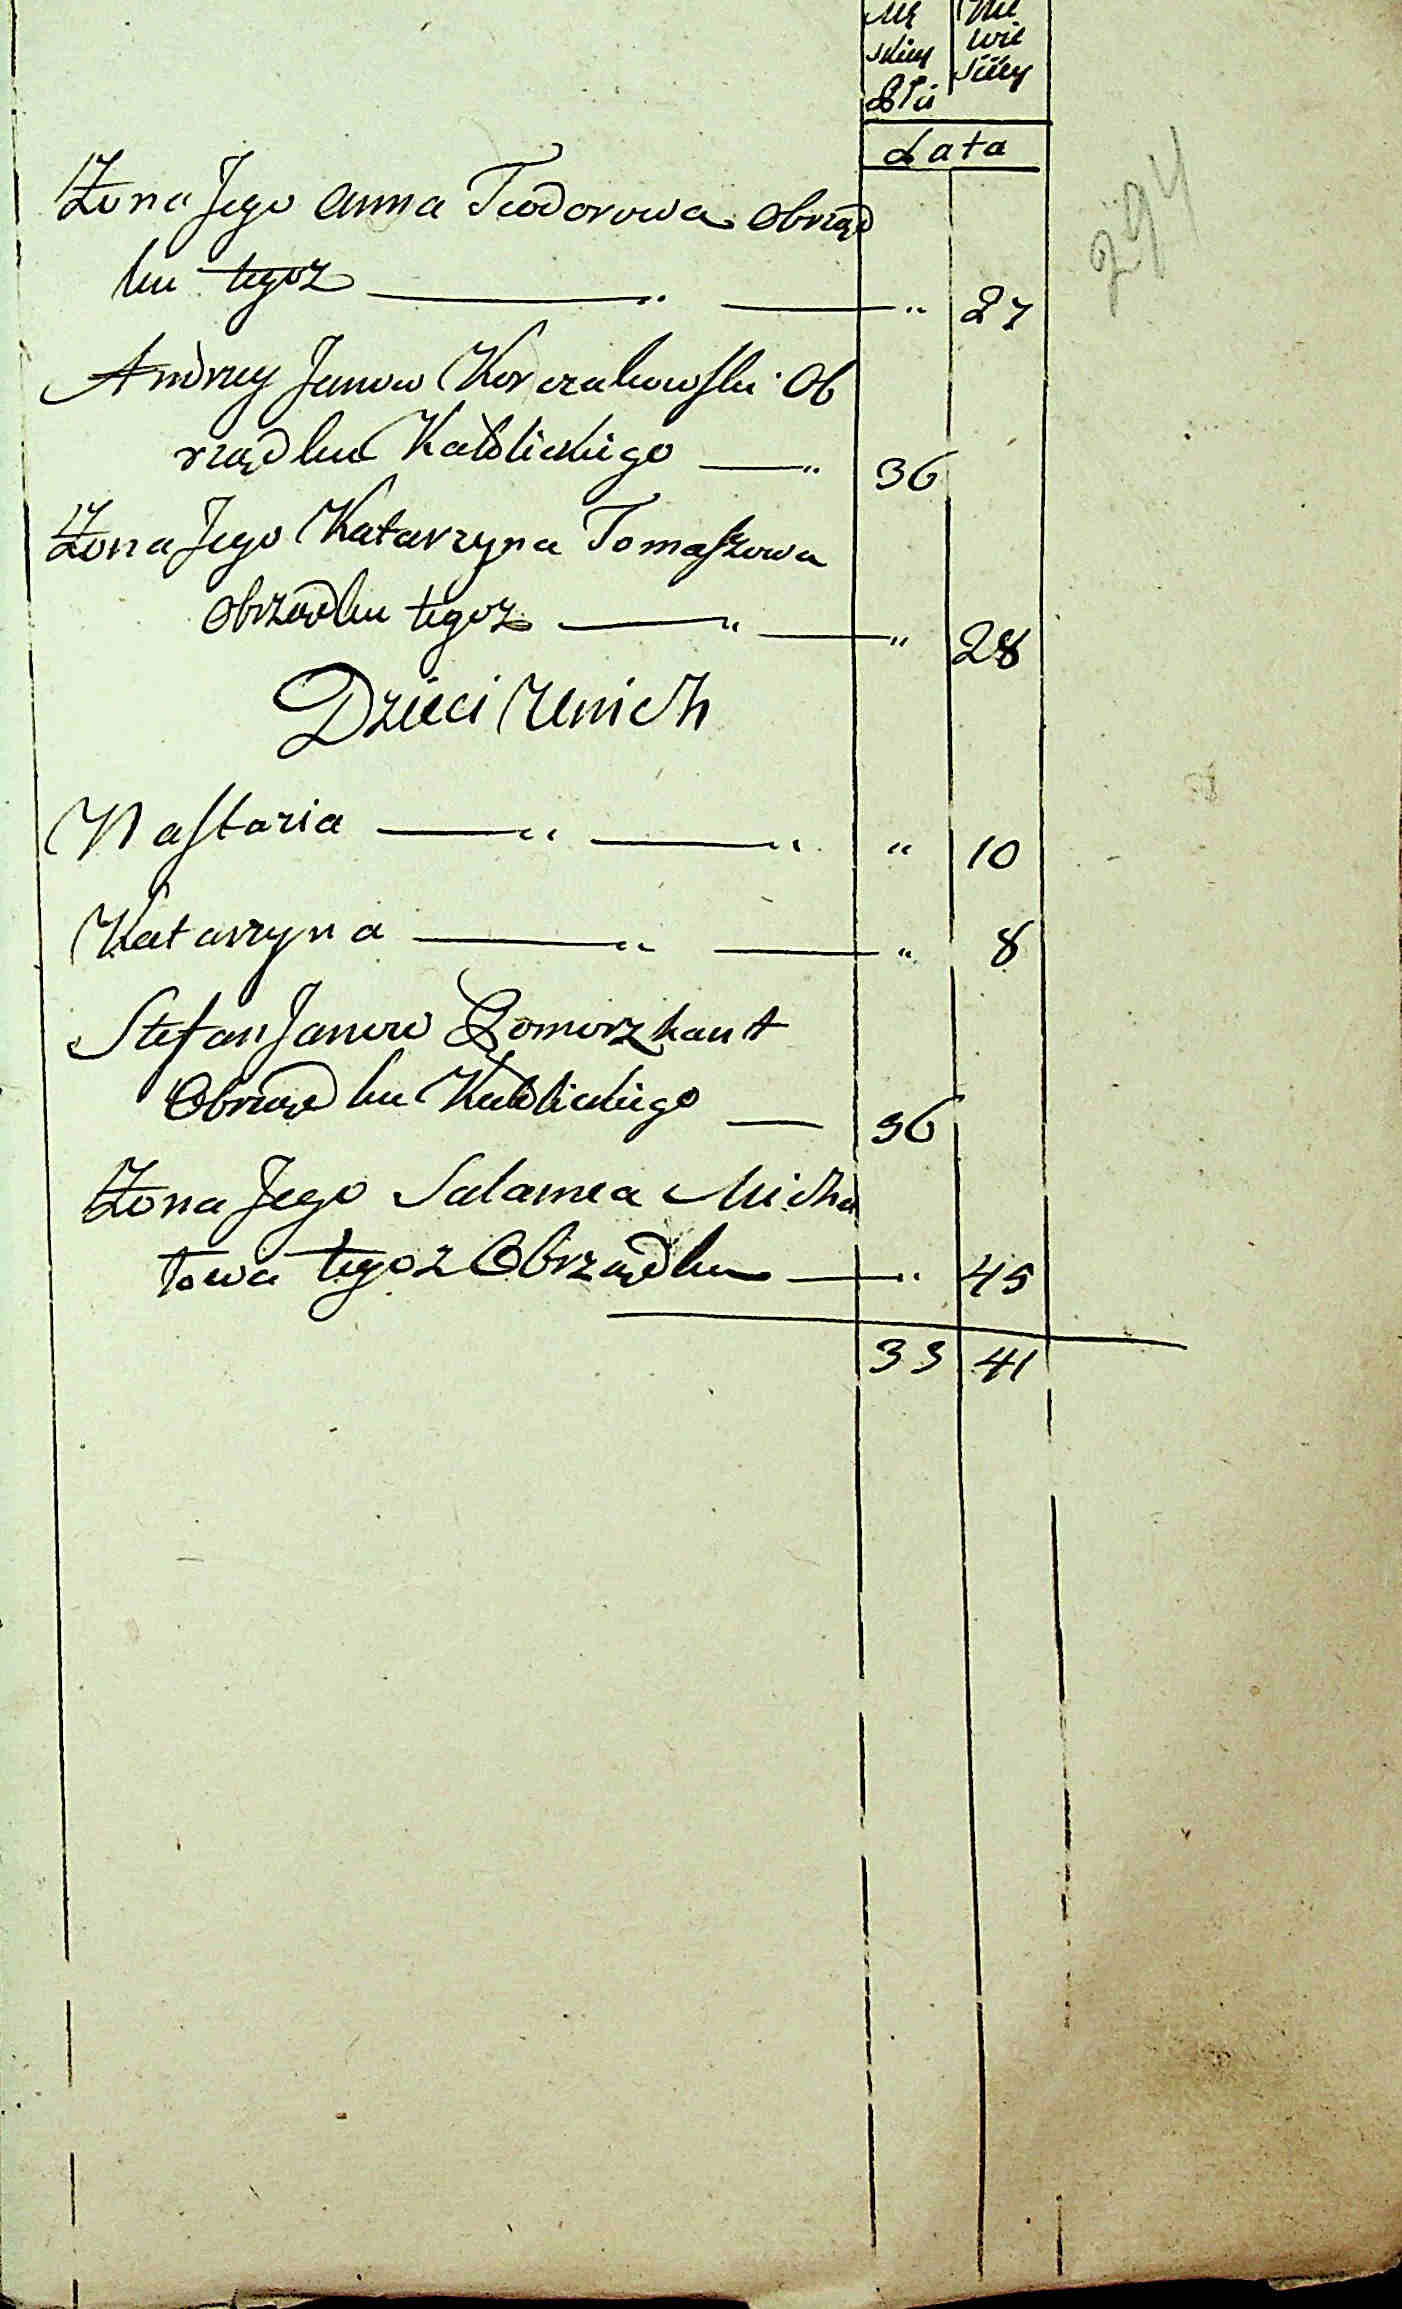 Mę Nie
skiey wie
Płci ściey
Lata
Żona Jego Anna Teodorowa Obrząd
ku tegoż — " — " 27
Andrzey Janow Korczakowski Ob
rządku Katolickiego — " 36
Żona Jego Katarzyna Tomaszowa
Obrządku tegoż — " — " 28
Dzieci Unich
Nastazia — " — " " 10
Katarzyna — " — " 8
Stefan Janow
Obrządku Katolickiego — 36
Żona Jego Salamea Micha
łowa tegoż Obrządku — " 45
33 41
294